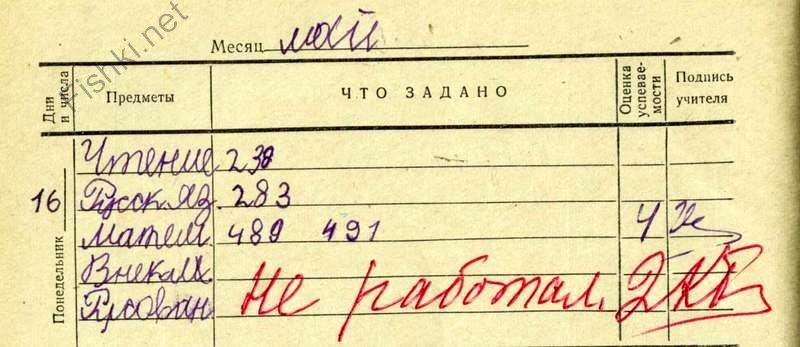 Fishki.net
Месяц май
Дни и числа Предметы ЧТО ЗАДАНО Оценка успевае-мости Подпись учителя
Понедельник 16 Чтение 238
Русск яз. 283
Матем 489 491 4
Внекл
Рисован Не работал. 2